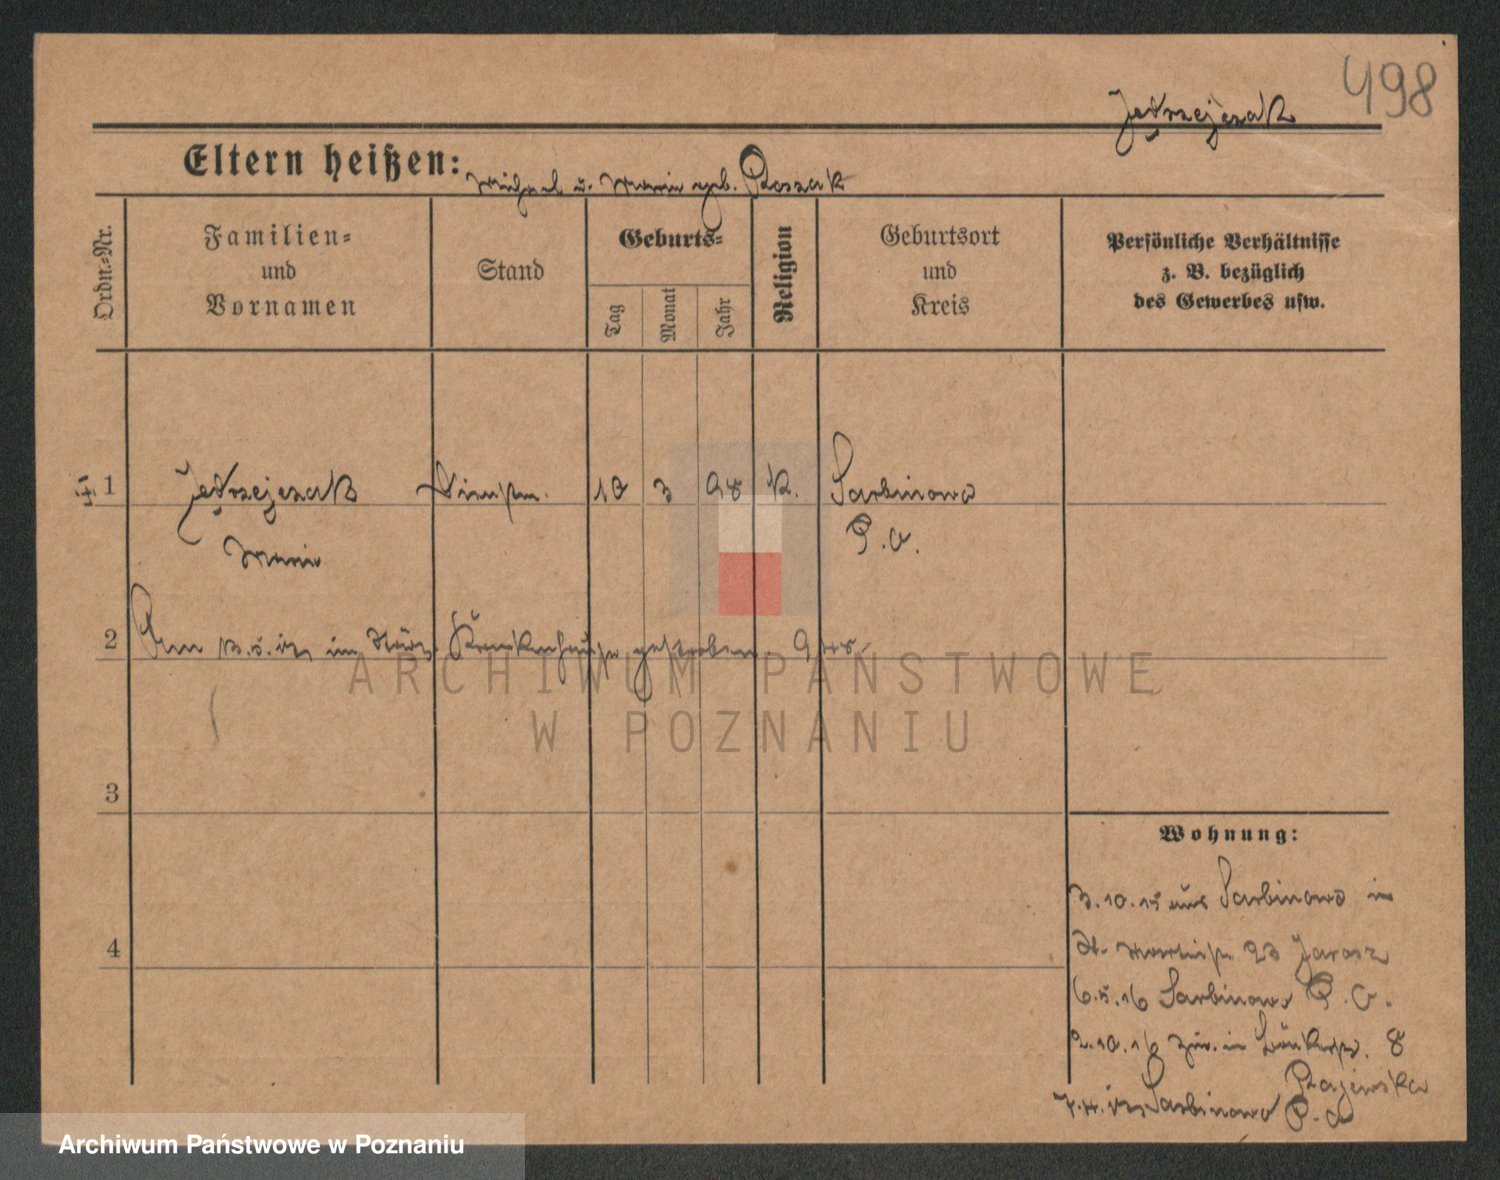 498
Jedrzejczak
Eltern heißen: Michael u. Marie geb. Ploszak
Ordn.-Nr.
Familien-
und
Vornamen
Stand
Geburts-
Tag
Monat
Jahr
Religion
Geburtsort
und
Kreis
Persönliche Verhältnisse
z. B. bezüglich
des Gewerbes usw.
1 Jedrzejczak 10 3 98 K. Sarbinowo
Marie P. O.
2 Am im Krankenhause gestorben.
3
4
Wohnung:
3.10.15 aus Sarbinowo in
St. Martinstr. 23 Jarosz
6.5.16 Sarbinowo P. O.
2.10.16 zur. in 8
Sarbinowo P. O.
ARCHIWUM PAŃSTWOWE
W POZNANIU
Archiwum Państwowe w Poznaniu